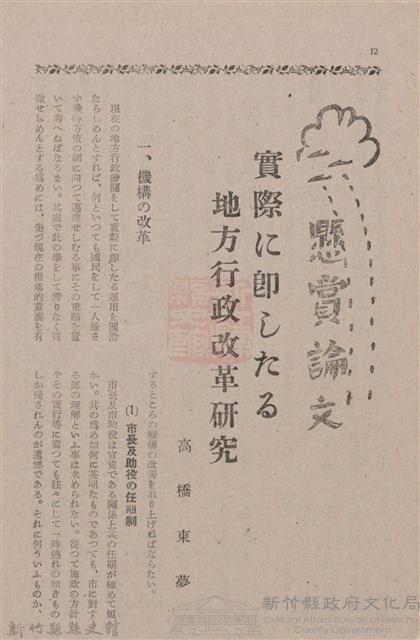 12
懸賞論文
實際に即したる
地方行政改革研究
高橋東夢
一、機構の改革
現在の地方行政機關をして實際に即したる運用を圖治
たらしめんとすれば、何といつても國民をして一人餘さ
いて考へねばならない。其處で此の事をして滯りなく貫
徹せしめんとする爲めには、先づ現在の指導的意義を有
するところの機構の改善を取り上げねばならない。
(1) 市長及助役の任期制
市長及市助役は官吏である關係上其の任期が極めて短
かい。其の爲め如何に英明なものであつても、市に對す
る眞の理解といふ事は求められない。從つて施政の方針
やその實行等に當つても往々にして一時逃れの如きもの
しか殘されんのが遺憾である。それに何ういふものか、
新竹縣縣史館
新竹縣政府文化局
Cultural Affairs Bureau of Hsinchu
County Government